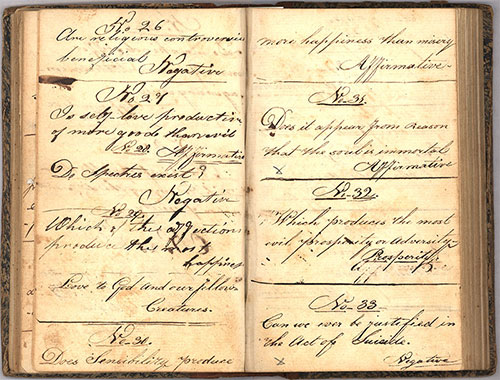 No 26
Are religious controversies
beneficial
Negative
No 27
Is self-love productive
of more good than evil
No. 28. Affirmative
Do Spectres exist?
Negative
No 29.
Which of the affections
produce the most
happiness
Love to God and our fellow
Creatures.
No 30.
Does Sensibility produce
more happiness than misery
Affirmative
No-31.
Does it appear from reason
that the soul is immortal
Affirmative
No-32.
Which produces the most
evil prosperity or Adversity
Prosperity
No-33
Can we ever be justified in
the Act of Suicide.
Negative